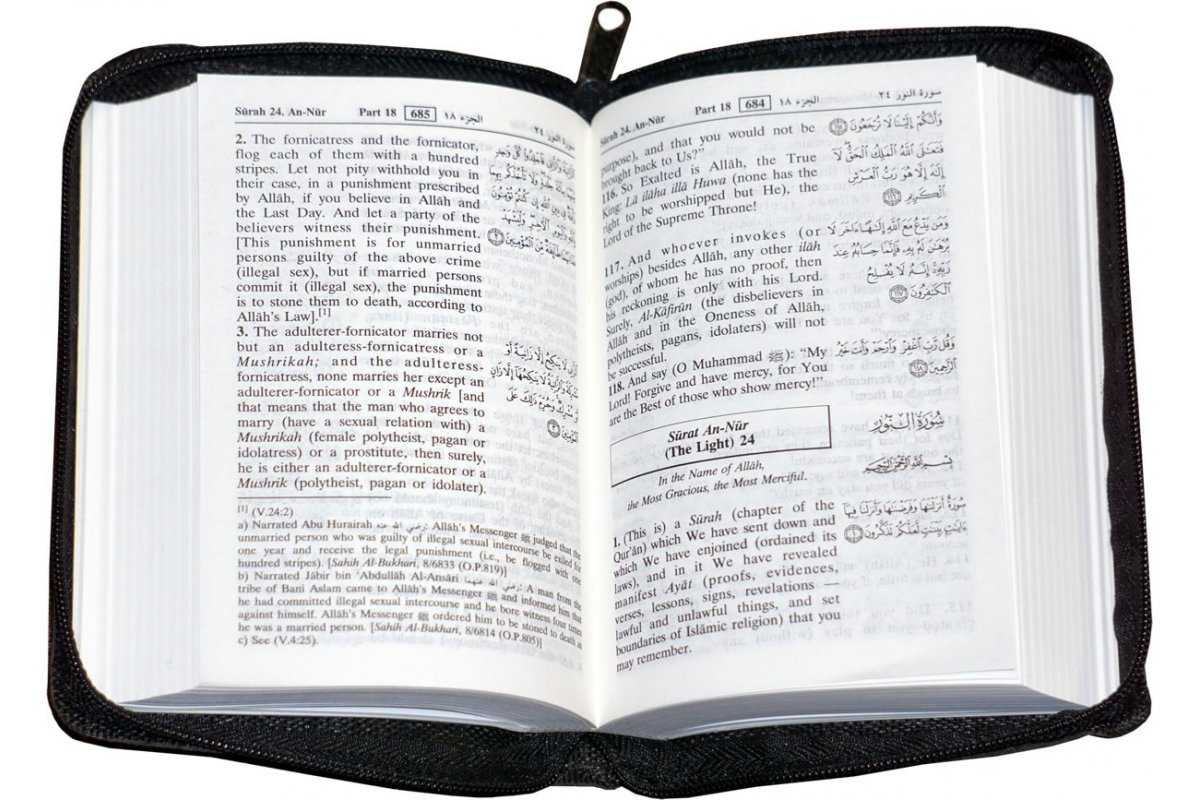 Sūrah 24. An-Nūr Part 18 684 الجزء ١٨ سورة النور ٢٤
purpose), and that you would not be
brought back to Us?"
116. So Exalted is Allâh, the True
King: Lâ ilâha illâ Huwa (none has the
right to be worshipped but He), the
Lord of the Supreme Throne!
117. And whoever invokes (or
worships) besides Allâh, any other ilâh
(god), of whom he has no proof, then
his reckoning is only with his Lord.
Surely, Al-Kâfirûn (the disbelievers in
Allâh and in the Oneness of Allâh,
polytheists, pagans, idolaters) will not
be successful.
118. And say (O Muhammad ﷺ): "My
Lord! Forgive and have mercy, for You
are the Best of those who show mercy!"
وَأَنَّكُمْ إِلَيْنَا لَا تُرْجَعُونَ ١١٥
فَتَعَٰلَى ٱللَّهُ ٱلْمَلِكُ ٱلْحَقُّ لَآ
إِلَٰهَ إِلَّا هُوَ رَبُّ ٱلْعَرْشِ
ٱلْكَرِيمِ ١١٦
وَمَن يَدْعُ مَعَ ٱللَّهِ إِلَٰهًا ءَاخَرَ لَا
بُرْهَٰنَ لَهُۥ بِهِۦ فَإِنَّمَا حِسَابُهُۥ عِندَ
رَبِّهِۦٓ إِنَّهُۥ لَا يُفْلِحُ
ٱلْكَٰفِرُونَ ١١٧
وَقُل رَّبِّ ٱغْفِرْ وَٱرْحَمْ وَأَنتَ خَيْرُ
ٱلرَّٰحِمِينَ ١١٨
Sūrat An-Nūr
(The Light) 24
سُورَةُ النُّورِ
In the Name of Allâh,
the Most Gracious, the Most Merciful.
بِسْمِ ٱللَّهِ ٱلرَّحْمَٰنِ ٱلرَّحِيمِ
1. (This is) a Sûrah (chapter of the
Qur'ân) which We have sent down and
which We have enjoined (ordained its
laws), and in it We have revealed
manifest Ayât (proofs, evidences,
verses, lessons, signs, revelations —
lawful and unlawful things, and set
boundaries of Islâmic religion) that you
may remember.
سُورَةٌ أَنزَلْنَٰهَا وَفَرَضْنَٰهَا وَأَنزَلْنَا فِيهَآ
ءَايَٰتٍۭ بَيِّنَٰتٍ لَّعَلَّكُمْ تَذَكَّرُونَ ١
Sūrah 24. An-Nūr Part 18 685 الجزء ١٨ سورة النور ٢٤
2. The fornicatress and the fornicator,
flog each of them with a hundred
stripes. Let not pity withhold you in
their case, in a punishment prescribed
by Allâh, if you believe in Allâh and
the Last Day. And let a party of the
believers witness their punishment.
[This punishment is for unmarried
persons guilty of the above crime
(illegal sex), but if married persons
commit it (illegal sex), the punishment
is to stone them to death, according to
Allâh's Law].[1]
3. The adulterer-fornicator marries not
but an adulteress-fornicatress or a
Mushrikah; and the adulteress-
fornicatress, none marries her except an
adulterer-fornicator or a Mushrik [and
that means that the man who agrees to
marry (have a sexual relation with) a
Mushrikah (female polytheist, pagan or
idolatress) or a prostitute, then surely,
he is either an adulterer-fornicator or a
Mushrik (polytheist, pagan or idolater).
[1] (V.24:2)
a) Narrated Abu Hurairah رضي الله عنه: Allâh's Messenger ﷺ judged that the
unmarried person who was guilty of illegal sexual intercourse be exiled for
one year and receive the legal punishment (i.e., be flogged with one
hundred stripes). [Sahih Al-Bukhari, 8/6833 (O.P.819)]
b) Narrated Jâbir bin 'Abdullâh Al-Ansâri رضي الله عنهما: A man from the
tribe of Bani Aslam came to Allâh's Messenger ﷺ and informed him that
he had committed illegal sexual intercourse and he bore witness four times
against himself. Allâh's Messenger ﷺ ordered him to be stoned to death as
he was a married person. [Sahih Al-Bukhari, 8/6814 (O.P.805)]
c) See (V.4:25).